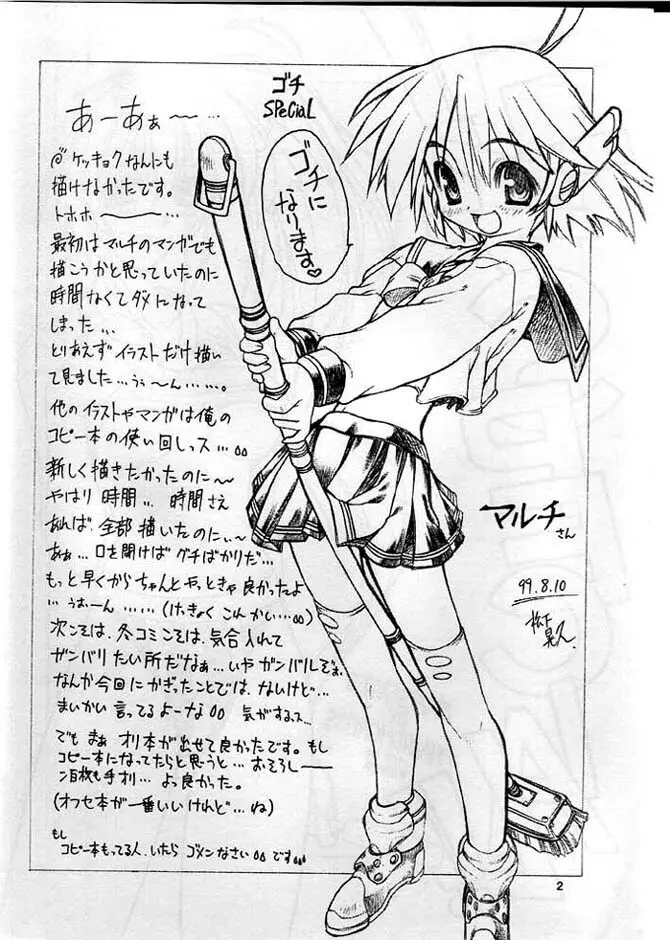 ゴチ
SPeciaL
ゴチに
なります。♡
あーあぁ〜…
ケッキョクなんにも
描けなかったです。
トホホ〜…
最初はマルチのマンガでも
描こうかと思っていたのに
時間なくてダメになって
しまった…
とりあえずイラストだけ描い
て見ました…うぅーん……。
他のイラストやマンガは俺の
コピー本の使い回しっス…
新しく描きたかったのに〜
やはり時間…時間さえ
あれば、全部描いたのにぃ〜
あぁ…口を開けばグチばかりだ…
もっと早くからちゃんとやっときゃ良かったよ
…うぉーん……(けっきょくこんかい…)
次こそは、冬コミこそは、気合入れて
ガンバリたい所だなぁ…いやガンバルぞぉ。
なんか今回にかぎったことでは、ないけど…
まいかい言ってるよーな 気がするっス…
でもまぁオリ本が出せて良かったです。もし
コピー本になってたらと思うと…おそろしー
百枚も手オリ…よっ良かった。
(オフセ本が一番いいけれど…ね)
もし
コピー本もってる人、いたらゴメンなさい です
マルチさん
99.8.10
2